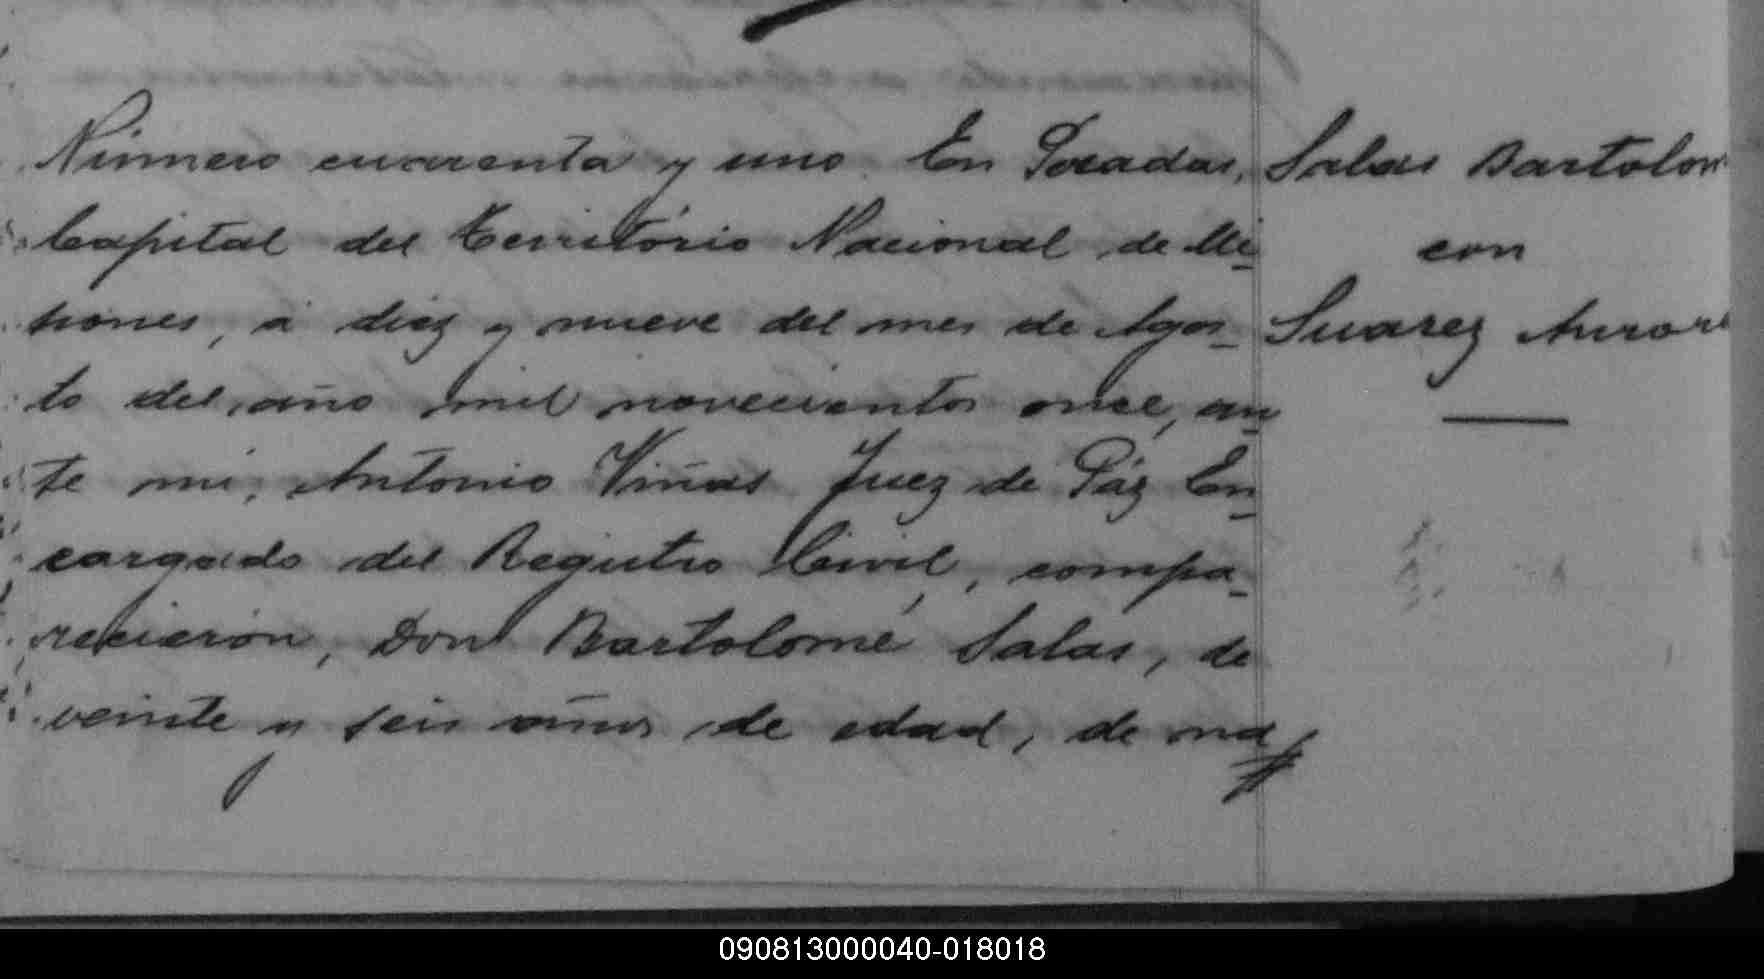 Número cuarenta y uno. En Posadas,
Capital del Território Nacional de Mi-
siones, á diez y nueve del mes de Agos-
to del año mil novecientos once, an-
te mi, Antonio Viñas Juez de Páz En-
cargado del Registro Civil, compa-
recieron, Don Bartolomé Salas, de
veinte y seis años de edad, de na
Salas Bartolom
con
Suarez Aurora
090813000040-018018